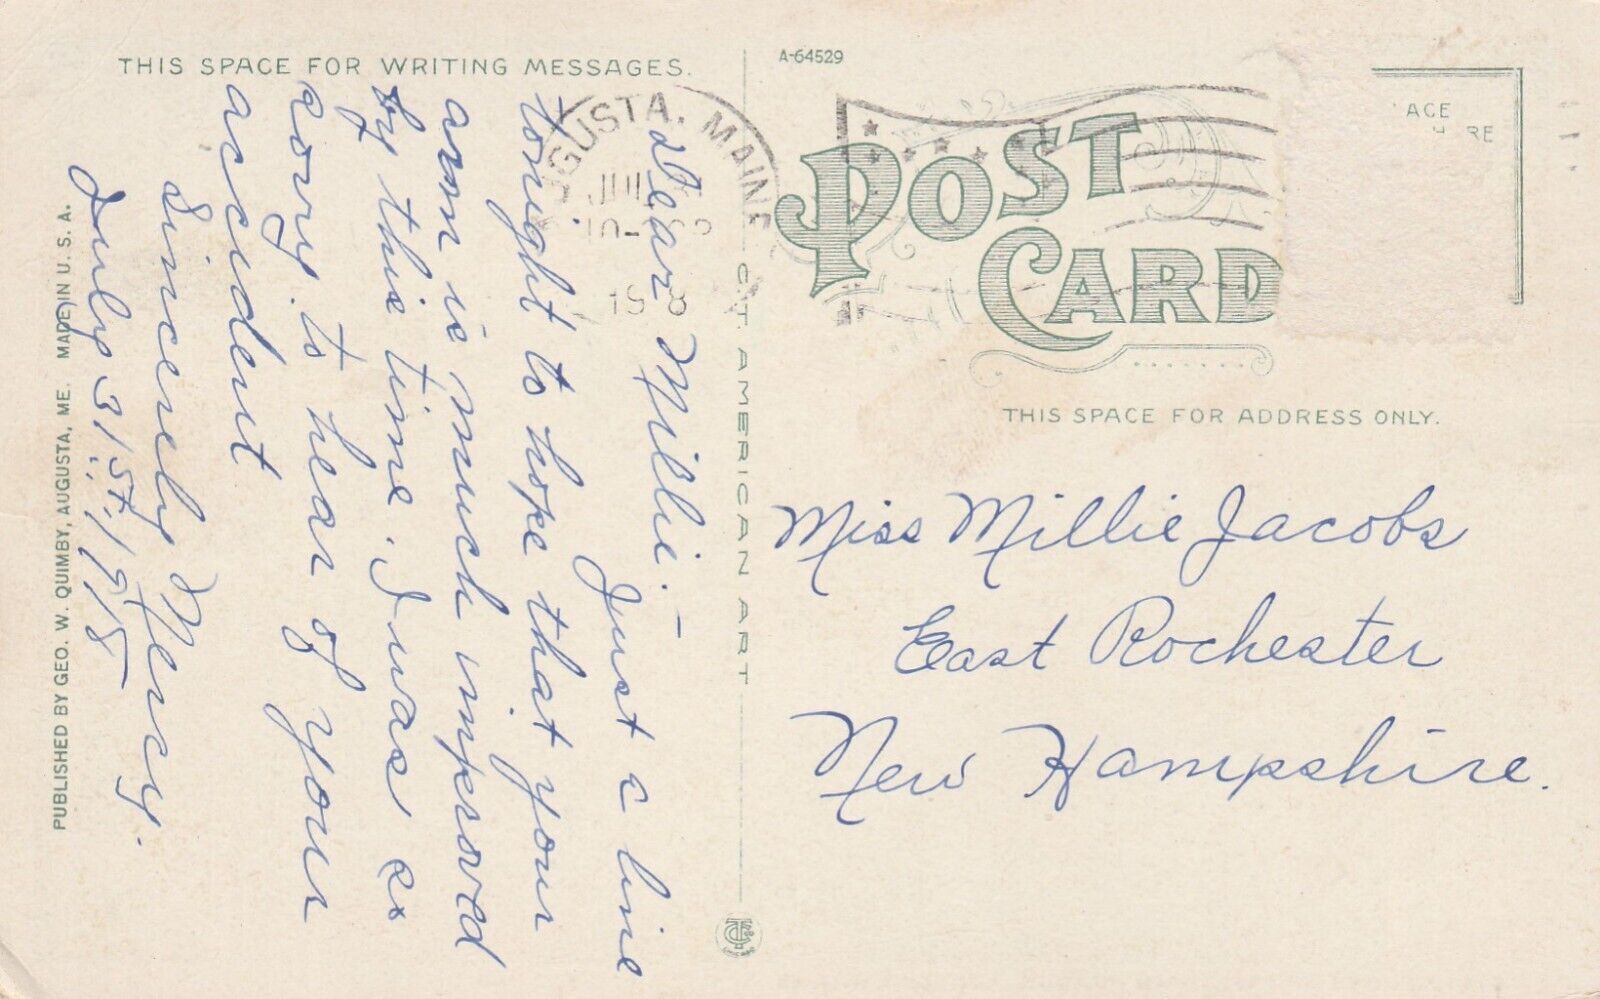 THIS SPACE FOR WRITING MESSAGES.
Dear Millie. –
Just a line
tonight to hope that your
arm is much improved
by this time. I was so
sorry to hear of your
accident
Sincerely Mercy.
July 31st, 1918
PUBLISHED BY GEO. W. QUIMBY, AUGUSTA, ME. MADE IN U. S. A.
C. T. AMERICAN ART
A-64529
GUSTA, MAINE
POST
CARD
ACE
RE
THIS SPACE FOR ADDRESS ONLY.
Miss Millie Jacobs
East Rochester
New Hampshire.